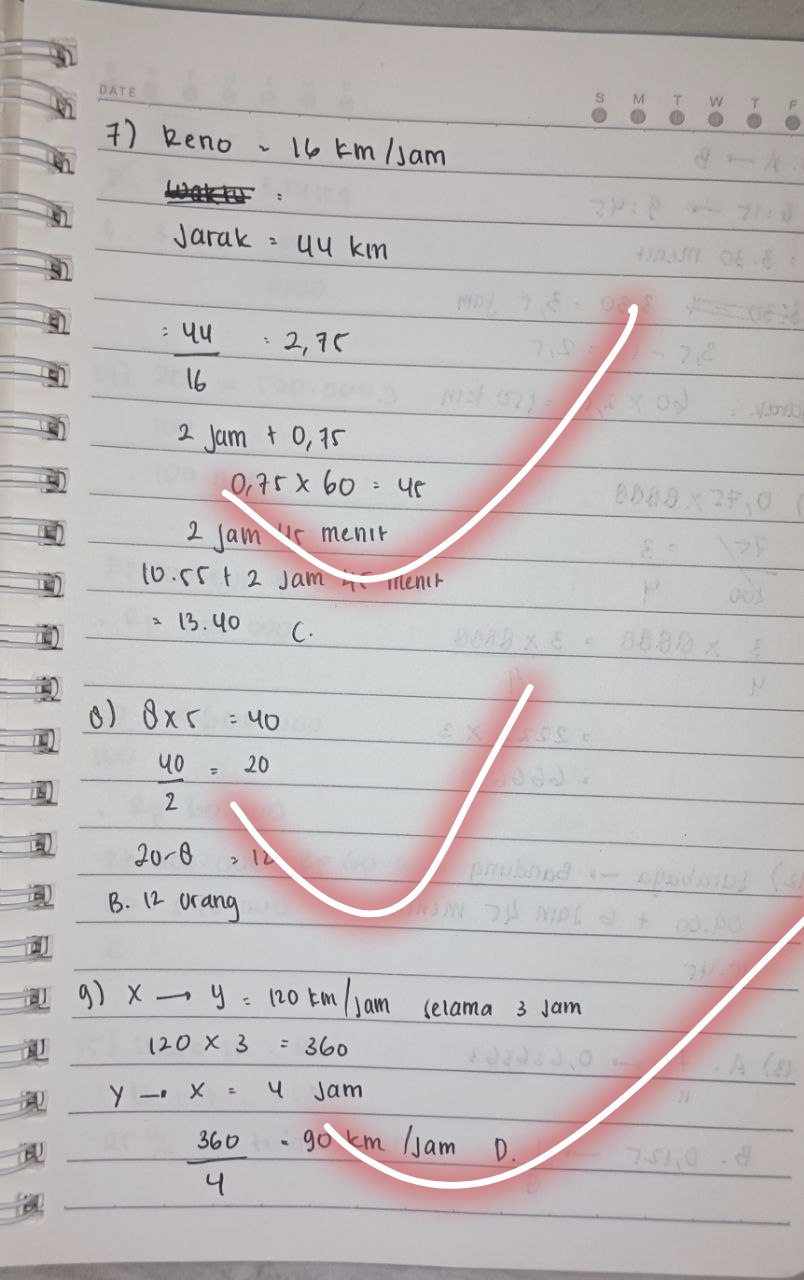 DATE
S M T W T F
7) Reno = 16 km/jam
waktu :
Jarak = 44 km
: 44 : 2,75
16
2 jam + 0,75
0,75 x 60 = 45
2 jam 45 menit
10.55 + 2 jam 45 menit
= 13.40 C.
8) 8 x 5 = 40
40 = 20
2
20-8 = 12
B. 12 orang
9) X → Y = 120 km/jam selama 3 jam
120 x 3 = 360
Y → X = 4 jam
360 = 90 km/jam D.
4